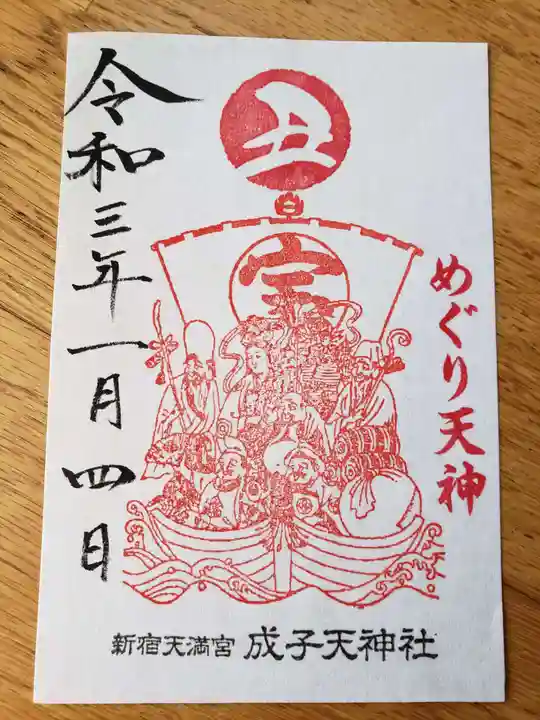 丑
宝
めぐり天神
令和三年一月四日
新宿天満宮 成子天神社